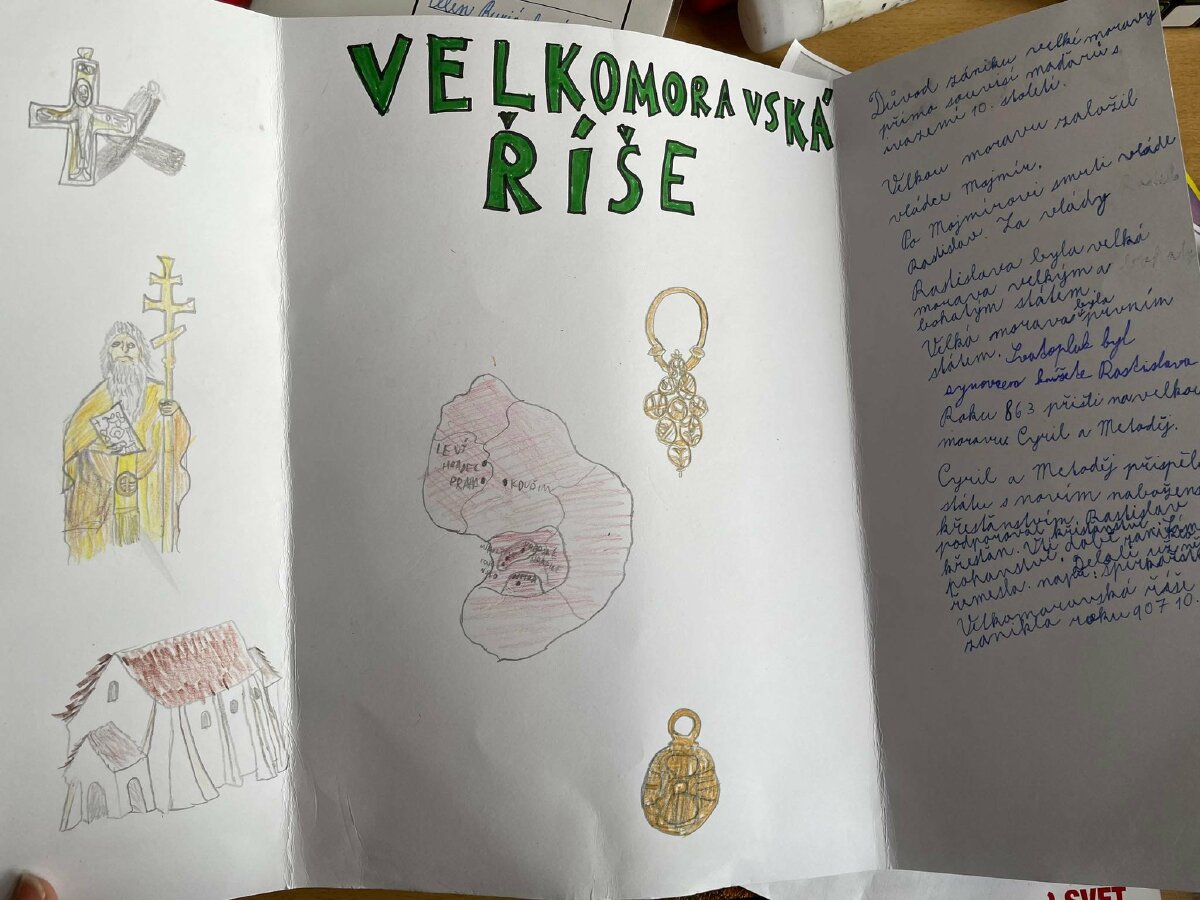 VELKOMORAVSKÁ
ŘÍŠE
LEVÝ
HRADEC
PRAHA
KOUŘIM
Důvod zániku velké moravy
přímo souvisí maďarů s
10. století.
Velkou moravu založil
vládce Mojmír.
Po Mojmírovi smrti vláde
Rastislav. Za vlády
Rastislava byla velká
morava velkým a
bohatým státem.
Velká morava byla prvním
státem. Svatopluk byl
synovcem knížete Rastislava
Roku 863 přišli na velkou
moravu Cyril a Metoděj.
Cyril a Metoděj přispěli
státu s novím nabožens
křesťanstvím. Rastislav
podporoval křisťanství
křesťan. V té době zaniklo
pohanství. Dělali
řemesla. např. šperkařs
Velkomoravská říše
zanikla roku 907 10.
SVET